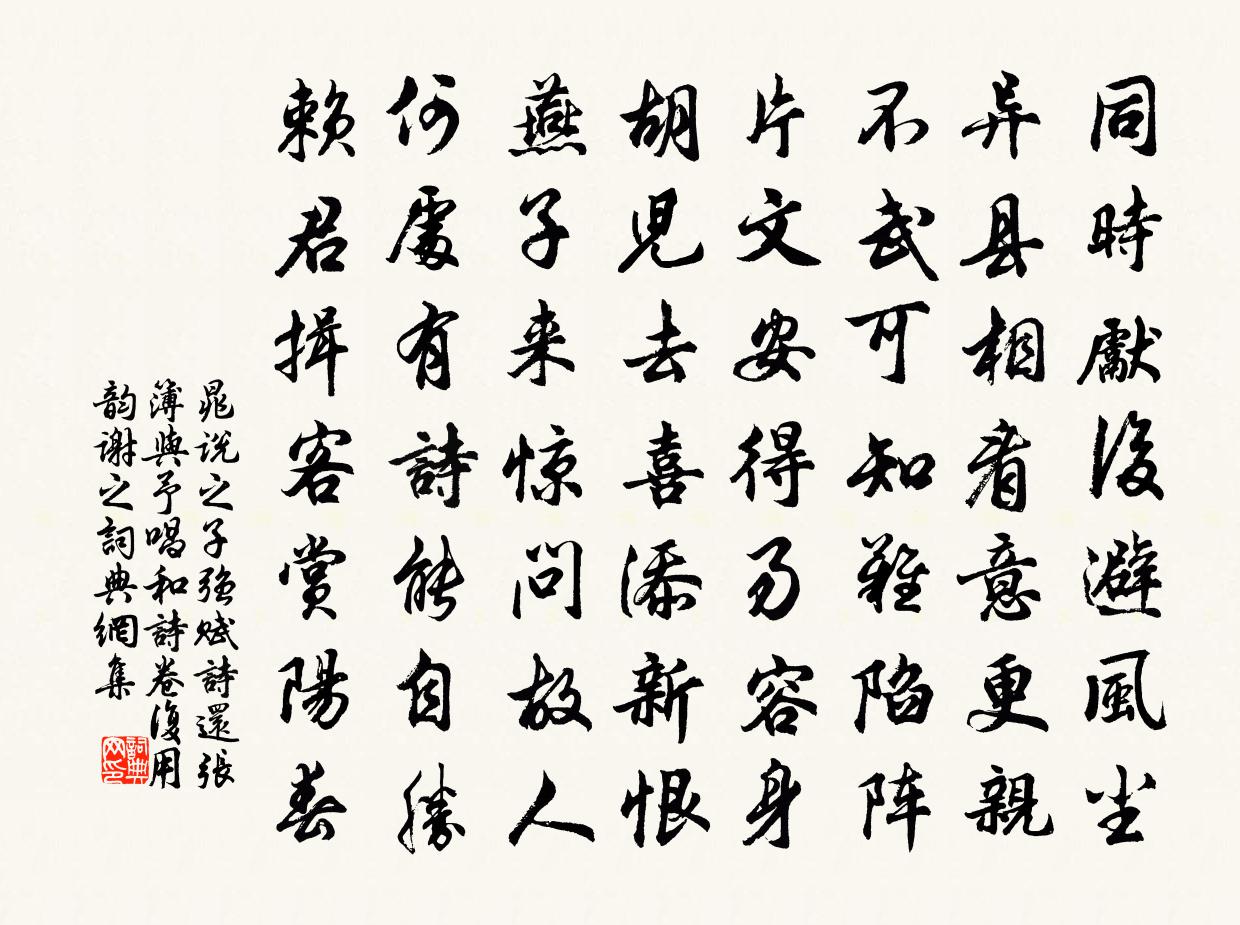 同時獻後避風尘
异县相看意更親
不武可知難陷阵
片文安得易容身
胡児去喜添新恨
燕子来惊問故人
何處有詩能自勝
賴君揖客賞陽春
晁说之子强赋詩還張
簿與予唱和詩卷復用
韵謝之詞典網集
詞典
网印